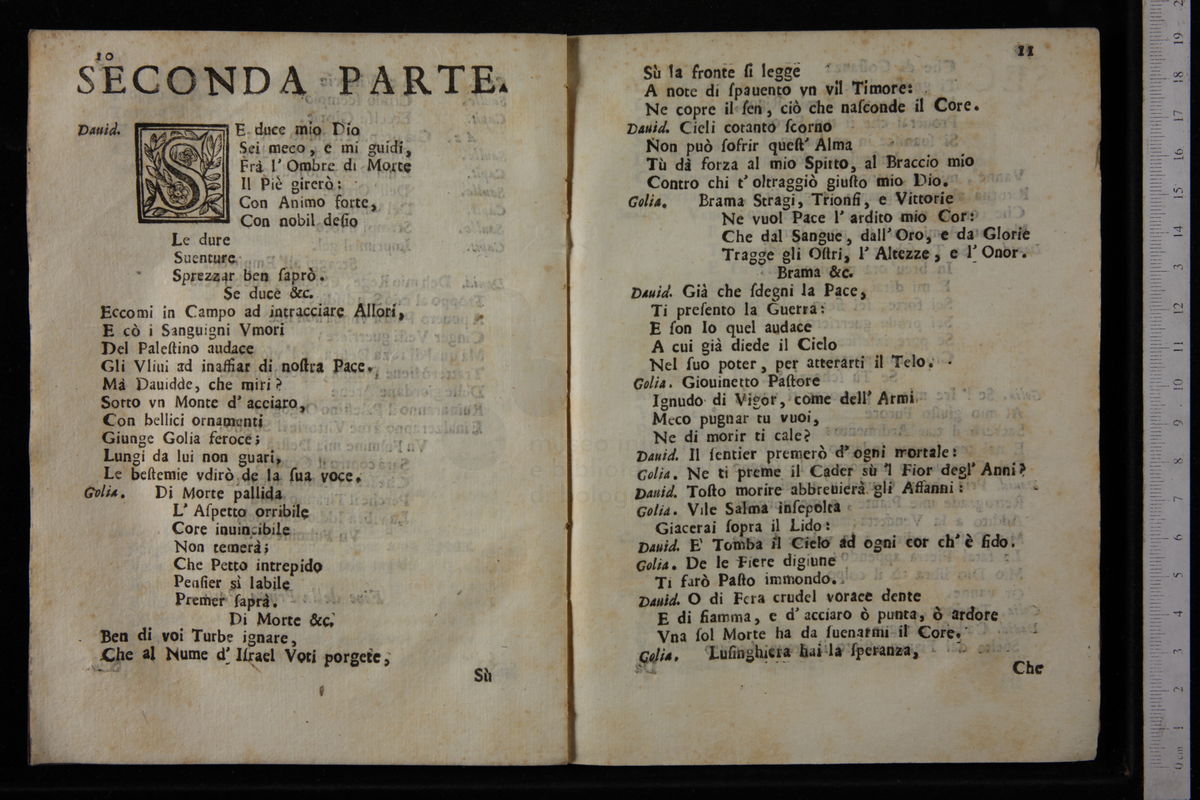 10
SECONDA PARTE.
Dauid. SE duce mio Dio
Sei meco, e mi guidi,
Frà l' Ombre di Morte
Il Piè girerò:
Con Animo forte,
Con nobil deſio
Le dure
Suenture
Sprezzar ben ſaprò.
Se duce &c.
Eccomi in Campo ad intracciare Allori,
E cò i Sanguigni Vmori
Del Paleſtino audace
Gli Vliui ad inaffiar di noſtra Pace.
Mà Dauidde, che miri?
Sotto vn Monte d' acciaro,
Con bellici ornamenti
Giunge Golia feroce;
Lungi da lui non guari,
Le beſtemie vdirò de la ſua voce.
Golia. Di Morte pallida
L' Aſpetto orribile
Core inuincibile
Non temerà;
Che Petto intrepido
Penſier sì labile
Premer ſaprà.
Di Morte &c.
Ben di voi Turbe ignare,
Che al Nume d' Iſrael Voti porgete,
Sù
11
Sù la fronte ſi legge
A note di ſpauento vn vil Timore:
Ne copre il ſen, ciò che naſconde il Core.
Dauid. Cieli cotanto ſcorno
Non può ſofrir queſt' Alma
Tù dà forza al mio Spirto, al Braccio mio
Contro chi t' oltraggiò giuſto mio Dio.
Golia. Brama Stragi, Trionfi, e Vittorie
Ne vuol Pace l' ardito mio Cor:
Che dal Sangue, dall' Oro, e da Glorie
Tragge gli Oſtri, l' Altezze, e l' Onor.
Brama &c.
Dauid. Già che ſdegni la Pace,
Ti preſento la Guerra:
E ſon Io quel audace
A cui già diede il Cielo
Nel ſuo poter, per atterarti il Telo.
Golia. Giouinetto Paſtore
Ignudo di Vigor, come dell' Armi
Meco pugnar tu vuoi,
Ne di morir ti cale?
Dauid. Il ſentier premerò d' ogni mortale:
Golia. Ne ti preme il Cader sù 'l Fior degl' Anni?
Dauid. Toſto morire abbreuierà gli Affanni:
Golia. Vile Salma inſepolta
Giacerai ſopra il Lido:
Dauid. E' Tomba il Cielo ad ogni cor ch' è fido.
Golia. De le Fiere digiune
Ti farò Paſto immondo.
Dauid. O di Fera crudel vorace dente
E di fiamma, e d' acciaro ò punta, ò ardore
Vna ſol Morte ha da ſuenarmi il Core.
Golia. Luſinghiera hai la ſperanza,
Che